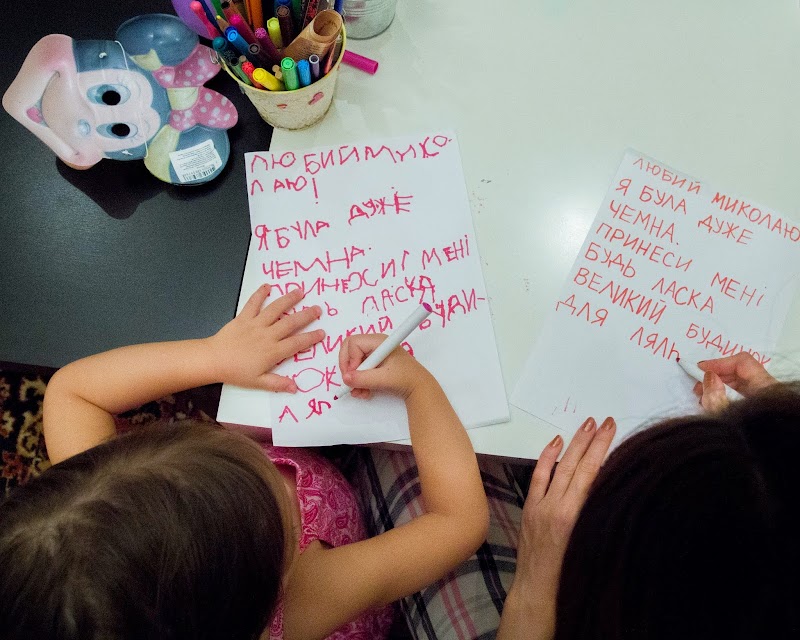 ЛЮБИЙ МИКО-
ЛАЮ!
Я БУЛА ДУЖЕ
ЧЕМНА.
ПРИНЕСИ МЕНІ
ЛАСКА
БУДИ-
ЛЯЛ
ЛЮБИЙ МИКОЛАЮ
Я БУЛА ДУЖЕ
ЧЕМНА.
ПРИНЕСИ МЕНІ
БУДЬ ЛАСКА
ВЕЛИКИЙ БУДИНОК
ДЛЯ ЛЯЛЬ